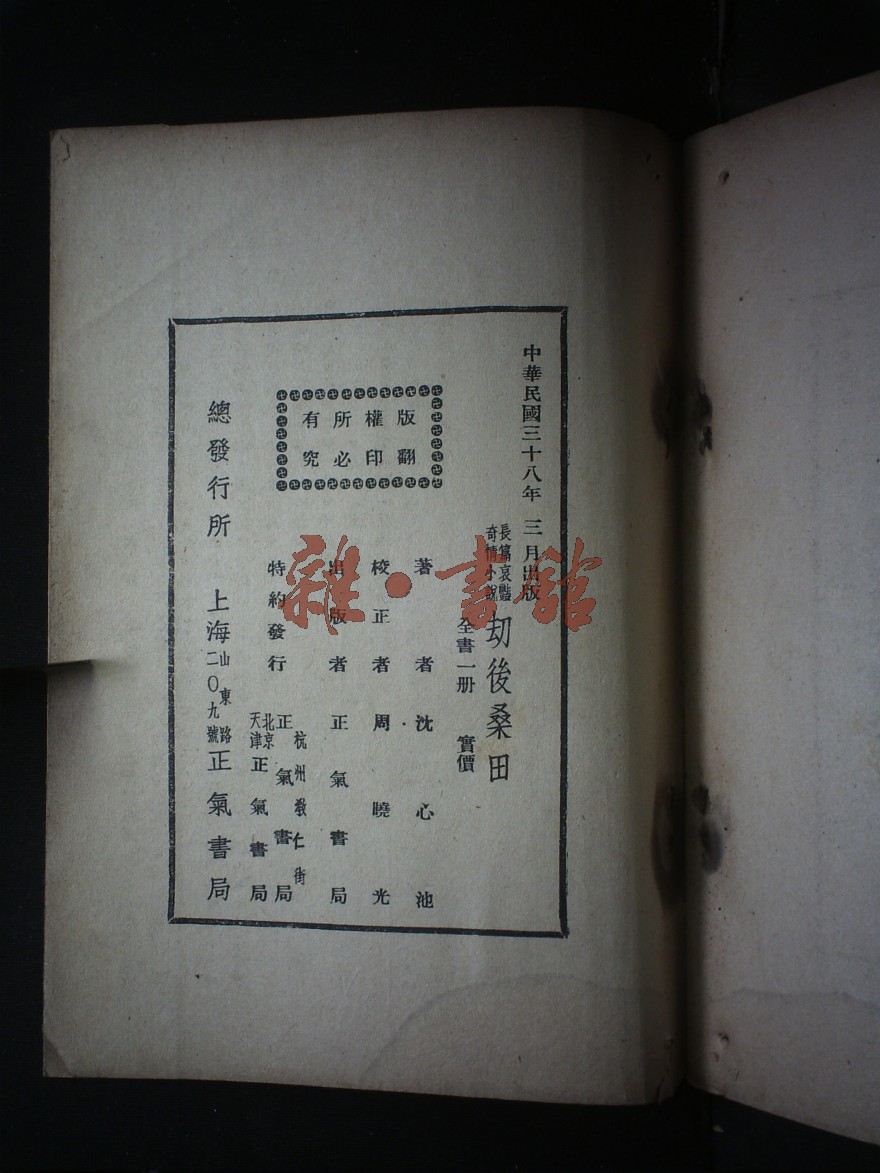 中華民國三十八年 三月出版
長篇哀豔
奇情小說
劫後桑田
全書一册 實價
版權所有
翻印必究
著者 沈心池
校正者 周曉光
出版者 正氣書局
特約發行
杭州教仁街
正氣書局
北京
天津
正氣書局
總發行所 上海
山東路
二〇九號
正氣書局
雜·書館